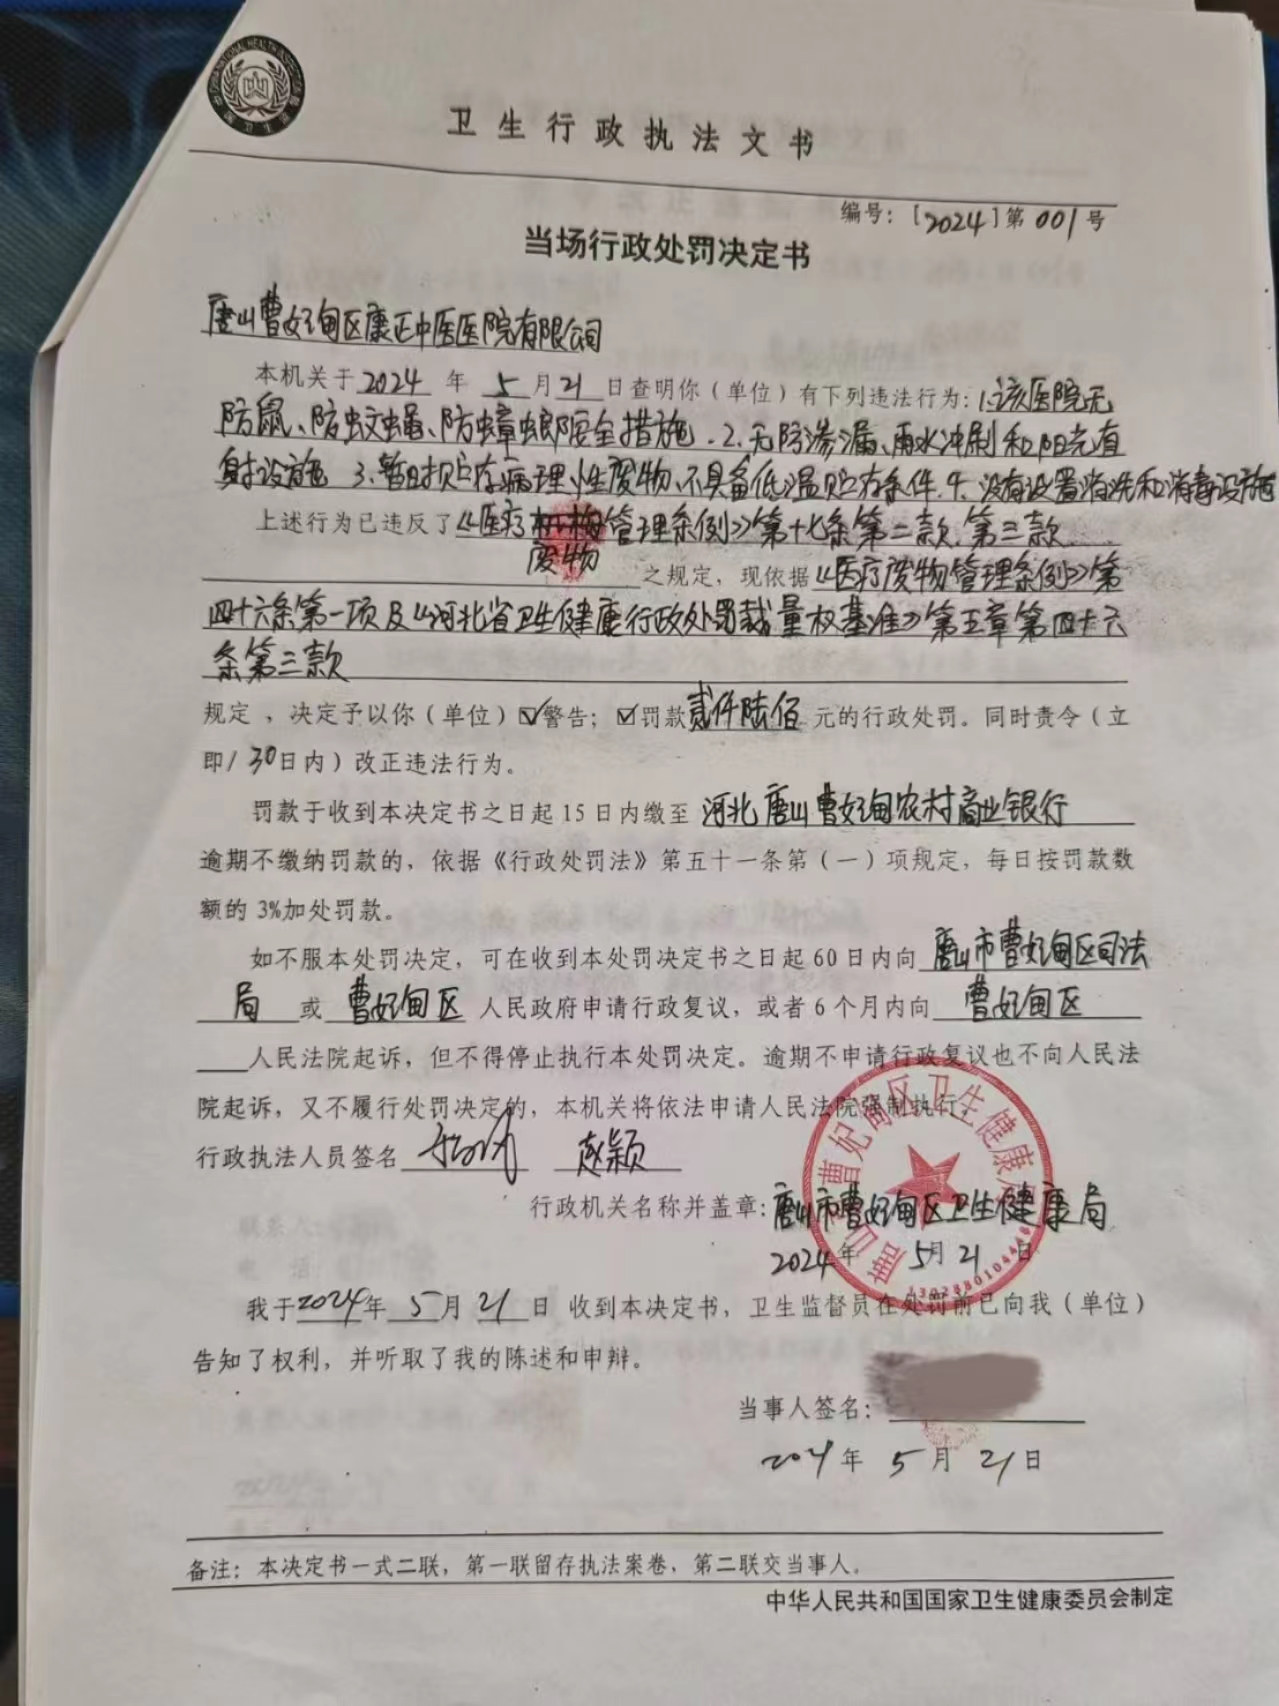 卫生行政执法文书
编号：[2024]第001号
当场行政处罚决定书
唐山曹妃甸区康正中医医院有限公司
本机关于2024年5月21日查明你（单位）有下列违法行为：1.该医院无
防鼠、防蚊蝇、防蟑螂安全措施.2.无防渗漏、雨水冲刷和阳光直
射设施 3.暂时贮存病理性废物、不具备低温贮存条件.4.没有设置清洗和消毒设施
上述行为已违反了《医疗机构管理条例》第十七条第二款.第三款
废物
之规定，现依据《医疗废物管理条例》第
四十六条第一项及《河北省卫生健康行政处罚裁量权基准》第五章第四十六
条第三款
规定，决定予以你（单位）☑警告；☑罚款贰仟陆佰元的行政处罚。同时责令（立
即/30日内）改正违法行为。
罚款于收到本决定书之日起15日内缴至河北唐山曹妃甸农村商业银行
逾期不缴纳罚款的，依据《行政处罚法》第五十一条第（一）项规定，每日按罚款数
额的3%加处罚款。
如不服本处罚决定，可在收到本处罚决定书之日起60日内向唐山市曹妃甸区司法
局或曹妃甸区人民政府申请行政复议，或者6个月内向曹妃甸区
人民法院起诉，但不得停止执行本处罚决定。逾期不申请行政复议也不向人民法
院起诉，又不履行处罚决定的，本机关将依法申请人民法院强制执行。
行政执法人员签名 赵颖
行政机关名称并盖章：唐山市曹妃甸区卫生健康局
2024年5月21日
我于2024年5月21日 收到本决定书，卫生监督员在处罚前已向我（单位）
告知了权利，并听取了我的陈述和申辩。
当事人签名：
2024年5月21日
备注：本决定书一式二联，第一联留存执法案卷，第二联交当事人。
中华人民共和国国家卫生健康委员会制定